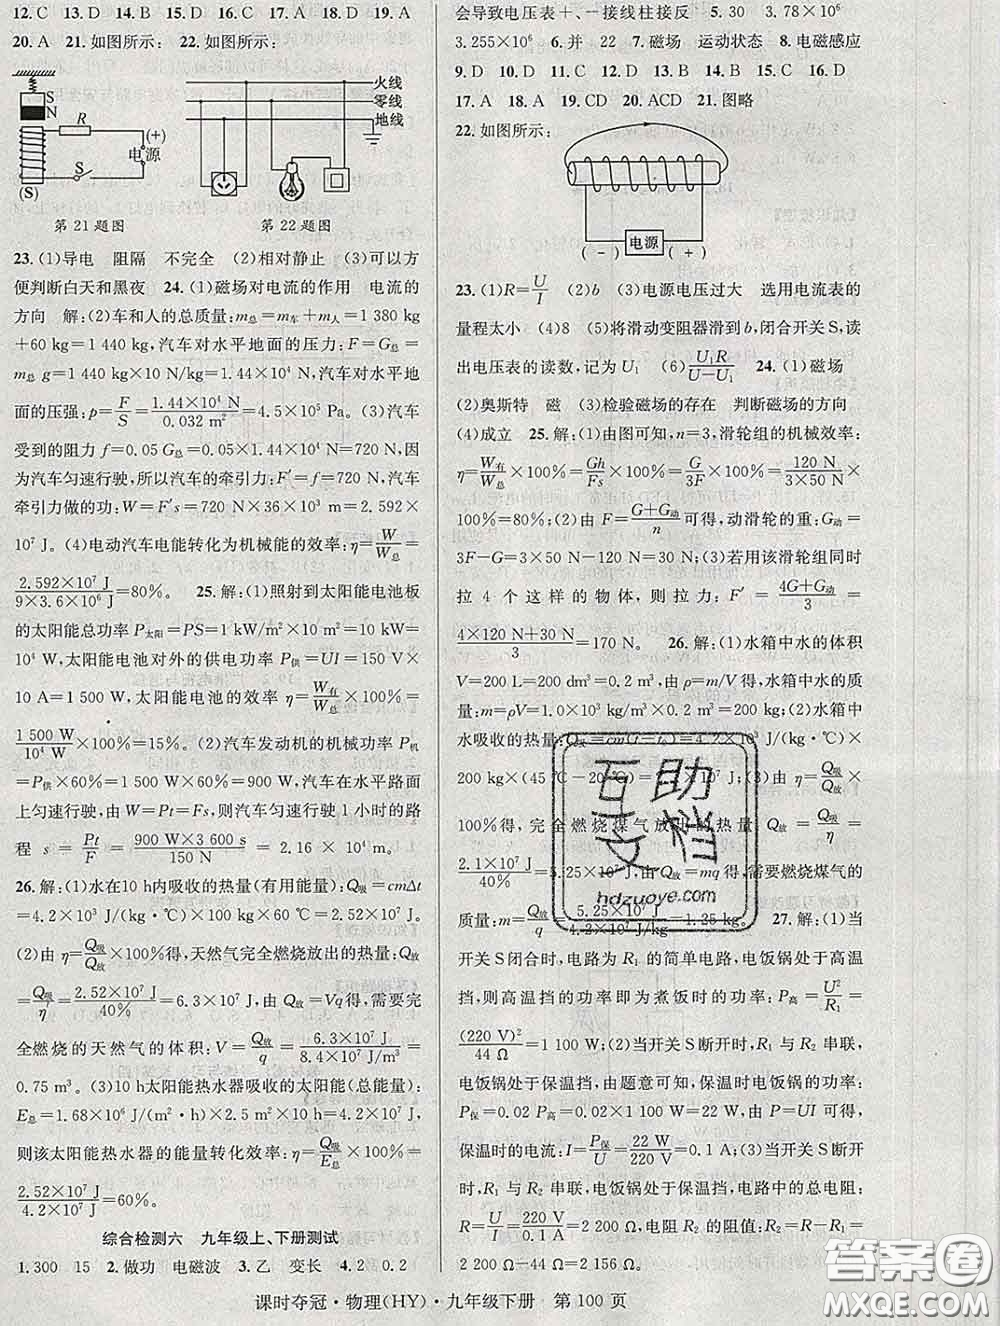 12. C 13. D 14. D 15. B 16. D 17. D 18. D 19. A
20. A 21. 如图所示: 22. 如图所示:
S
N
R
(+)
电源
S
(S)
第21题图
火线
零线
地线
第22题图
23. (1)导电 阻隔 不完全 (2)相对静止 (3)可以方
便判断白天和黑夜 24. (1)磁场对电流的作用 电流的
方向 解:(2)车和人的总质量:m总=m车+m人=1 380 kg
+60 kg=1 440 kg,汽车对水平地面的压力:F=G总=
m总 g=1 440 kg×10 N/kg=1.44×10⁴ N,汽车对水平地
面的压强:p=F/S=1.44×10⁴ N/0.032 m²=4.5×10⁵ Pa. (3)汽车
受到的阻力 f=0.05 G总=0.05×1.44×10⁴ N=720 N,
因为汽车匀速行驶,所以汽车的牵引力:F′=f=720 N,汽车
牵引力做的功:W=F′s=720 N×36×10³ m=2.592×
10⁷ J。(4)电动汽车电能转化为机械能的效率:η=W/W总=
2.592×10⁷ J/9×3.6×10⁶ J=80%。 25. 解:(1)照射到太阳能电池板
的太阳能总功率 P太阳=PS=1 kW/m²×10 m²=10 kW=
10⁴ W,太阳能电池对外的供电功率 P供=UI=150 V×
10 A=1 500 W,太阳能电池的效率 η=W有/W总×100%=
1 500 W/10⁴ W×100%=15%。(2)汽车发动机的机械功率 P机
=P供×60%=1 500 W×60%=900 W,汽车在水平路面
上匀速行驶,由 W=Pt=Fs,则汽车匀速行驶 1 小时的路
程 s=Pt/F=900 W×3 600 s/150 N=2.16×10⁴ m。
26. 解:(1)水在10 h内吸收的热量(有用能量):Q吸=cmΔt
=4.2×10³ J/(kg·℃)×100 kg×60 ℃=2.52×10⁷ J。
(2)由 η=Q吸/Q放得,天然气完全燃烧放出的热量:Q放=
Q吸/η=2.52×10⁷ J/40%=6.3×10⁷ J,由 Q放=Vq 得,完
全燃烧的天然气的体积:V=Q放/q=6.3×10⁷ J/8.4×10⁷ J/m³=
0.75 m³。(3)10 h太阳能热水器吸收的太阳能(总能量):
E总=1.68×10⁶ J/(m²·h)×2.5 m²×10 h=4.2×10⁷ J,
则该太阳能热水器的能量转化效率:η=Q吸/E总×100%=
2.52×10⁷ J/4.2×10⁷ J=60%。
综合检测六 九年级上、下册测试
1. 300 15 2. 做功 电磁波 3. 乙 变长 4. 2 0.2
会导致电压表+、—接线柱接反 5. 30 3.78×10⁵
3.255×10⁶ 6. 并 22 7. 磁场 运动状态 8. 电磁感应
9. D 10. D 11. D 12. B 13. B 14. B 15. C 16. D
17. A 18. A 19. CD 20. ACD 21. 图略
22. 如图所示:
电源
(−) (+)
23. (1)R=U/I (2)b (3)电源电压过大 选用电流表的
量程太小 (4)8 (5)将滑动变阻器滑到 b,闭合开关 S,读
出电压表的读数,记为 U₁ (6)U₁R/U−U₁ 24. (1)磁场
(2)奥斯特 磁 (3)检验磁场的存在 判断磁场的方向
(4)成立 25. 解:(1)由图可知,n=3,滑轮组的机械效率:
η=W有/W总×100%=Gh/Fs×100%=G/3F×100%=120 N/3×50 N×
100%=80%;(2)由 F=G+G动/n可得,动滑轮的重:G动=
3F−G=3×50 N−120 N=30 N;(3)若用该滑轮组同时
拉 4 个这样的物体,则拉力:F′=4G+G动/3=
4×120 N+30 N/3=170 N。 26. 解:(1)水箱中水的体积
V=200 L=200 dm³=0.2 m³,由 ρ=m/V 得,水箱中水的质
量:m=ρV=1.0×10³ kg/m³×0.2 m³=200 kg;(2)水箱中
水吸收的热量:Q吸=cm(t−t₀)=4.2×10³ J/(kg·℃)×
200 kg×(45 ℃−20 ℃)=2.1×10⁷ J;(3)由 η=Q吸/Q放×
100%得,完全燃烧煤气放出的热量:Q放=Q吸/η=
2.1×10⁷ J/40%=5.25×10⁷ J,由 Q放=mq 得,需要燃烧煤气的
质量:m=Q放/q=5.25×10⁷ J/4.2×10⁷ J/kg=1.25 kg。 27. 解:(1)当
开关 S 闭合时,电路为 R₁ 的简单电路,电饭锅处于高温
挡,则高温挡的功率即为煮饭时的功率:P高=U²/R₁=
(220 V)²/44 Ω=1 100 W;(2)当开关 S 断开时,R₁ 与 R₂ 串联,
电饭锅处于保温挡,由题意可知,保温时电饭锅的功率:
P保=0.02 P高=0.02×1 100 W=22 W,由 P=UI 可得,
保温时的电流:I=P保/U=22 W/220 V=0.1 A;(3)当开关 S 断开
时,R₁ 与 R₂ 串联,电饭锅处于保温挡,电路中的总电阻:
R=U/I=220 V/0.1 A=2 200 Ω,电阻 R₂ 的阻值:R₂=R−R₁=
2 200 Ω−44 Ω=2 156 Ω。
互助
文档
hdzuoye.com
答案圈
MXQE.COM
课时夺冠·物理(HY)·九年级下册·第 100 页